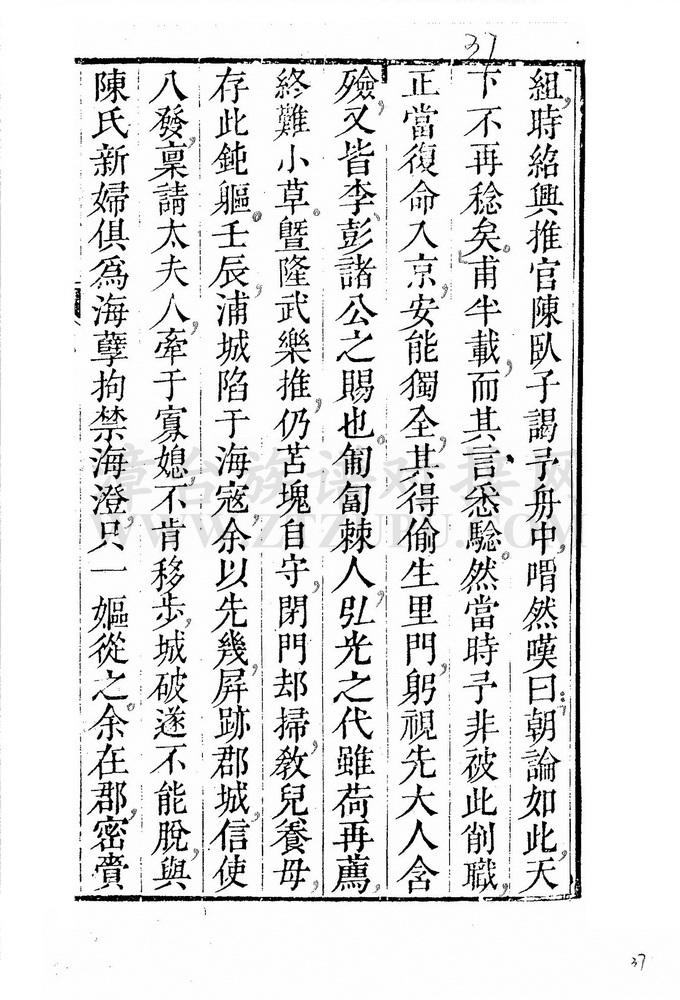 37
組時紹興推官陳臥子謁予舟中喟然嘆曰朝論如此天
下不再稔矣甫半載而其言悉騐然當時予非被此削職
正當復命入京安能獨全其得偷生里門躬視先大人含
殮又皆李彭諸公之賜也匍匐棘人弘光之代雖荷再薦
終難小草曁隆武樂推仍苫塊自守閉門却掃敎兒養母
存此鈍軀壬辰浦城陷于海寇余以先幾屏跡郡城信使
八發稟請太夫人牽于寡媳不肯移步城破遂不能脫與
陳氏新婦俱爲海孽拘禁海澄只一嫗從之余在郡密賫
漳台族谱对接网
WWW.ZTZUPU.COM
37